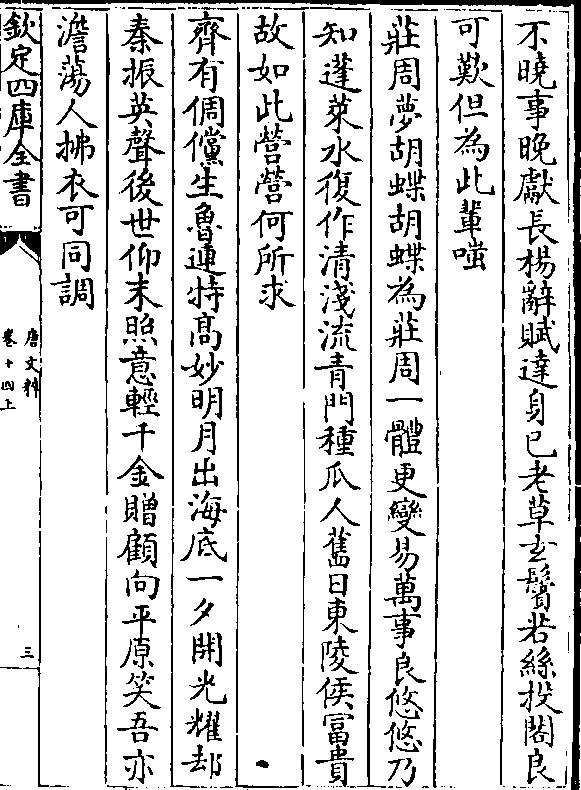 不曉事晚獻長楊辭賦達身已老草玄鬢若絲投閣良
可歎但為此輩嗤
莊周夢胡蝶胡蝶為莊周一體更變易萬事良悠悠乃
知蓬萊水復作清淺流青門種瓜人舊日東陵侯富貴
故如此營營何所求
齊有倜儻生魯連特高妙明月出海底一夕開光耀却
秦振英聲後世仰末照意輕千金贈顧向平原笑吾亦
澹蕩人拂衣可同調
欽定四庫全書
唐文粹
卷十四上
三